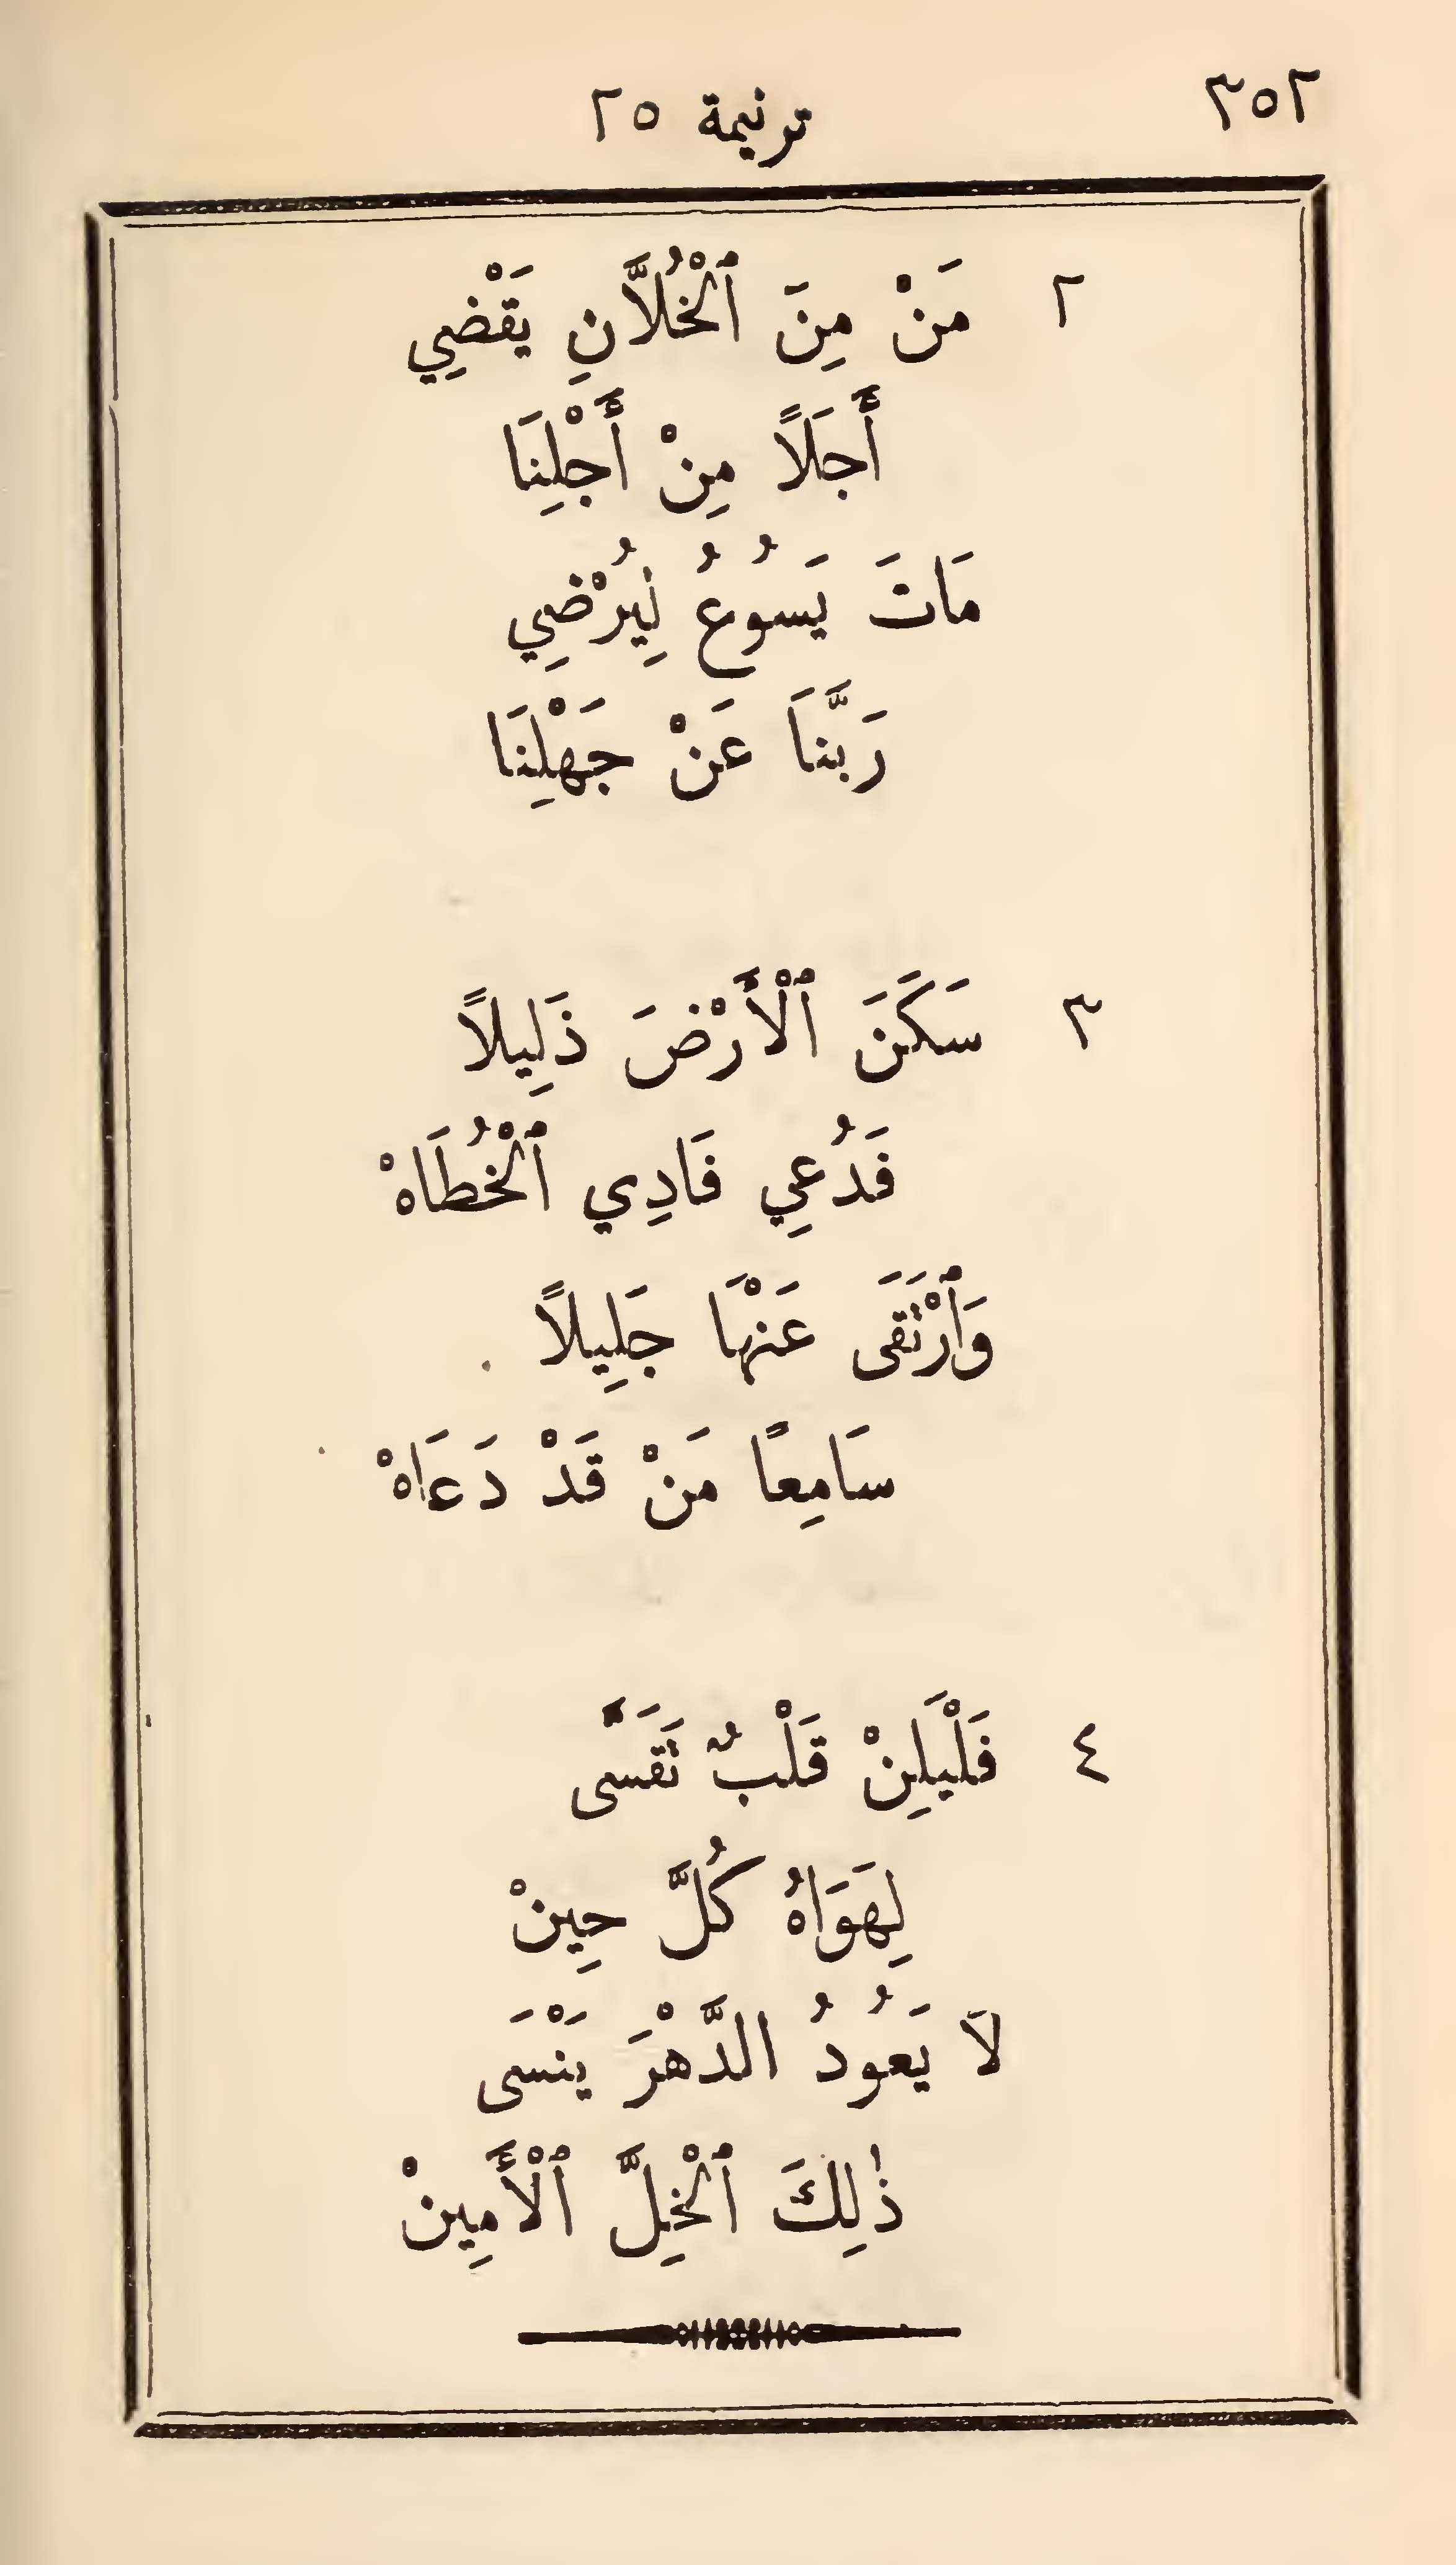 ٣٥٢
ترنيمة ٢٥
٢ مَنْ مِنَ ٱلْخُلَّانِ يَقْضِي
أَجَلًا مِنْ أَجْلِنَا
مَاتَ يَسُوعُ لِيُرْضِي
رَبَّنَا عَنْ جَهْلِنَا
٣ سَكَنَ ٱلْأَرْضَ ذَلِيلًا
فَدُعِي فَادِي ٱلْخُطَاهْ
وَٱرْتَقَى عَنْهَا جَلِيلًا
سَامِعًا مَنْ قَدْ دَعَاهْ
٤ فَلْيَلِنْ قَلْبٌ تَقَسَّى
لِهَوَاهُ كُلَّ حِينْ
لَا يَعُودُ الدَّهْرَ يَنْسَى
ذٰلِكَ ٱلْخِلَّ ٱلْأَمِينْ